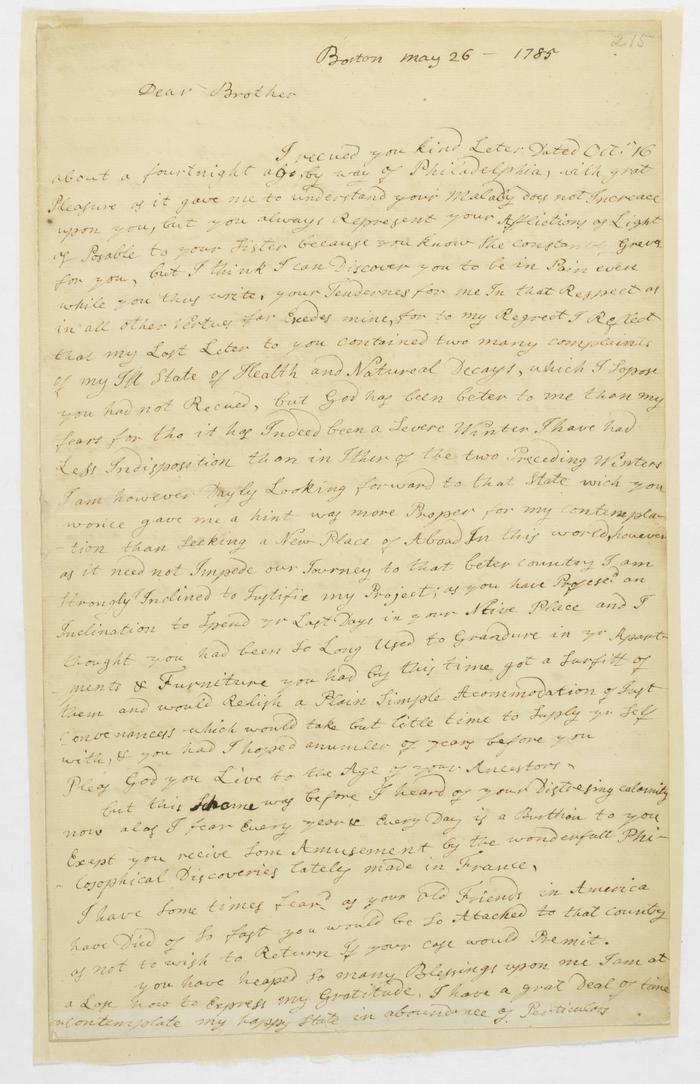 215
Boston may 26 - 1785
Dear Brother
I receued you kind Leter Dated Oct.r 16
about a fourtnight ago, by way of Philadelphia, with grat
Pleasure as it gave me to understand your Malady does not Increace
upon you, but you always Represent your Afflictions as Light
as Posable to your Sister because you know She constantly Greves
for you, but I think I can Discover you to be in Pain even
while you thus write, your Tendernes for me In that Respect as
in all other Virtues far Exedes mine, for to my Regret I Reflect
that my Last Leter to you contained two many complaints
of my Ill State of Health and Natureal Decays, which I Sopose
you had not Recued, but God has been beter to me than my
fears for tho it has Indeed been a Severe Winter I have had
Less Indisposition than in Ither of the two Preceding Winters
I am however Dayly Looking forward to that State wich you
wonce gave me a hint was more Proper for my contempla-
-tion than Seeking a New Place of Aboad In this world, however
as it need not Impede our Journey to that beter country I am
Strongly Inclined to Justifie my Project; as you have Profesed an
Inclination to Spend yr Last Days in your Ntive Place and I
thought you had been So Long Used to Grandure in yr Apart
-ments & Furniture you had by this time got a Surfitt of
them and would Relish a Plain Simple Acommodation of Just
Convenancess which would take but litle time to Suply yr Self
with, & you had I hoped a number of years before you
Pleas God you Live to the Age of your Ancestors.
but this Sheme was before I heard of your Distresing calamity
now alas I fear Every year & Every Day is a Burthion to you
Exept you recive Som Amusement by the wonderfull Phi-
-losophical Discoveries lately made in France,
I have Some times fear'd as your old Friends in America
have Died of So fast you would be So Atached to that country
as not to wish to Return If your case would Permit.
you have heaped So many Blessings upon me I am at
a Lose how to Express my Gratitude, I have a grat Deal of time
contemplate my happy State in aboundance of Perticulars